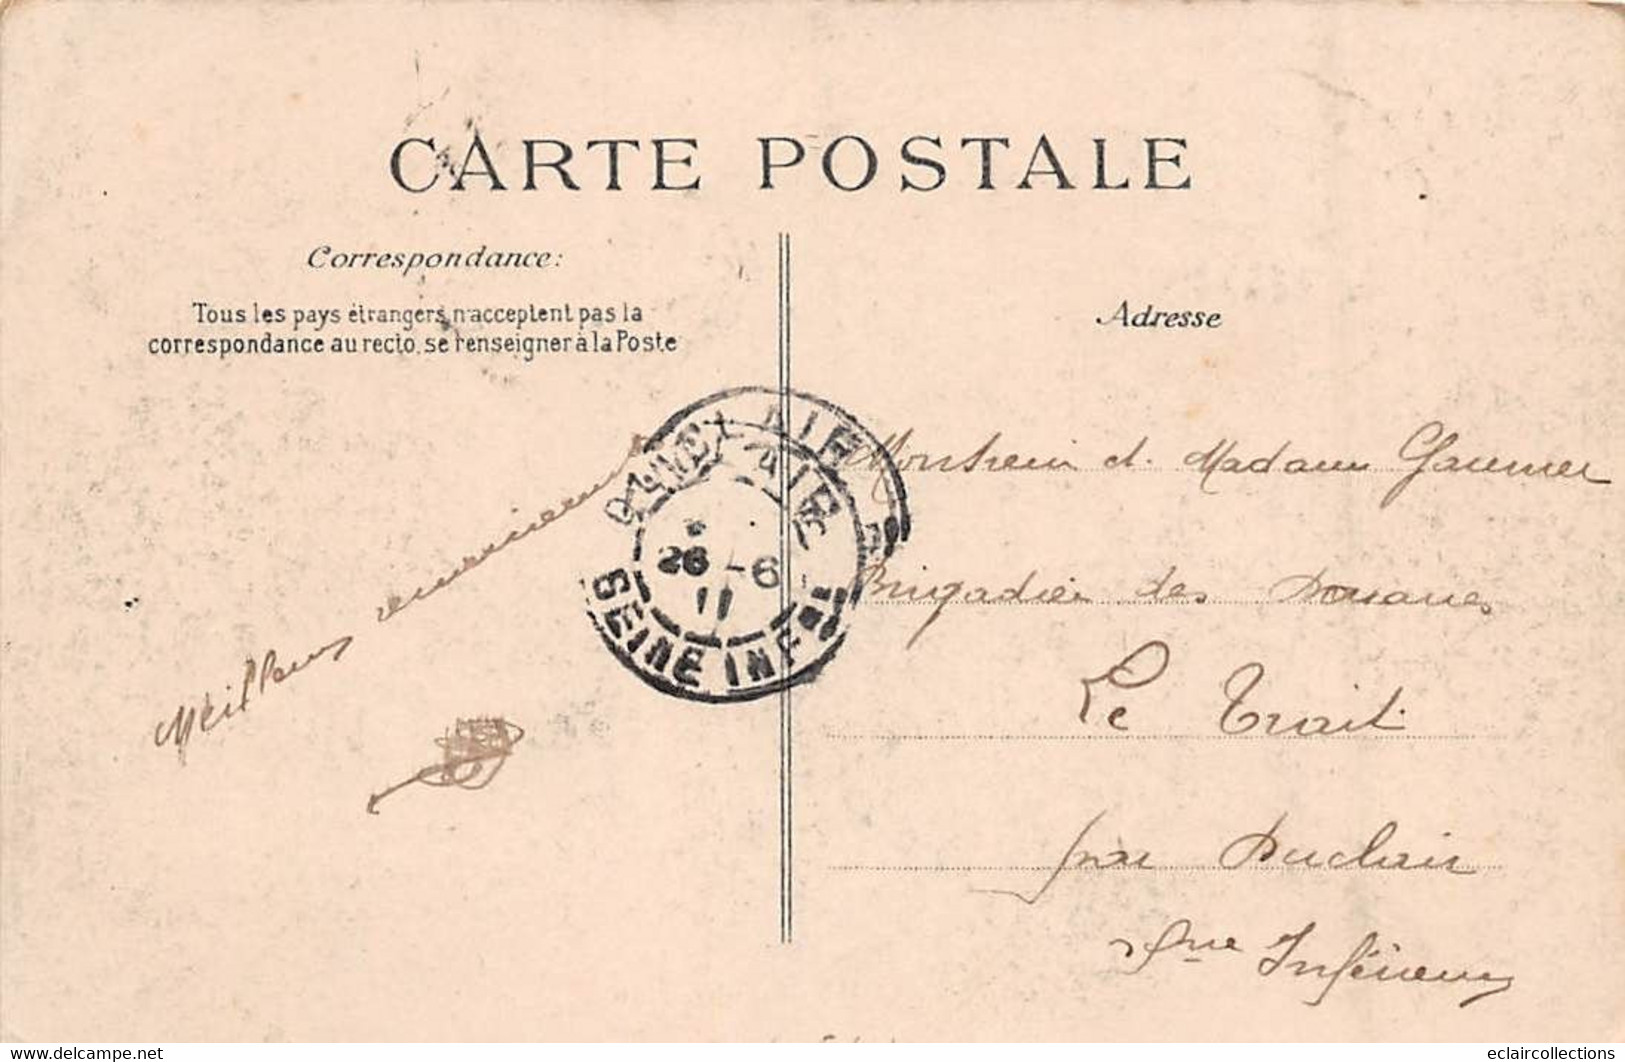 CARTE POSTALE
Correspondance:
Tous les pays étrangers n'acceptent pas la
correspondance au recto, se renseigner à la Poste
Adresse
DUCLAIR
26 -6
11
SEINE INF RE
Meilleurs
Monsieur et Madame
Brigadier des Douanes
Le Trait
par Duclair
Sne Inférieure
eclaircollections